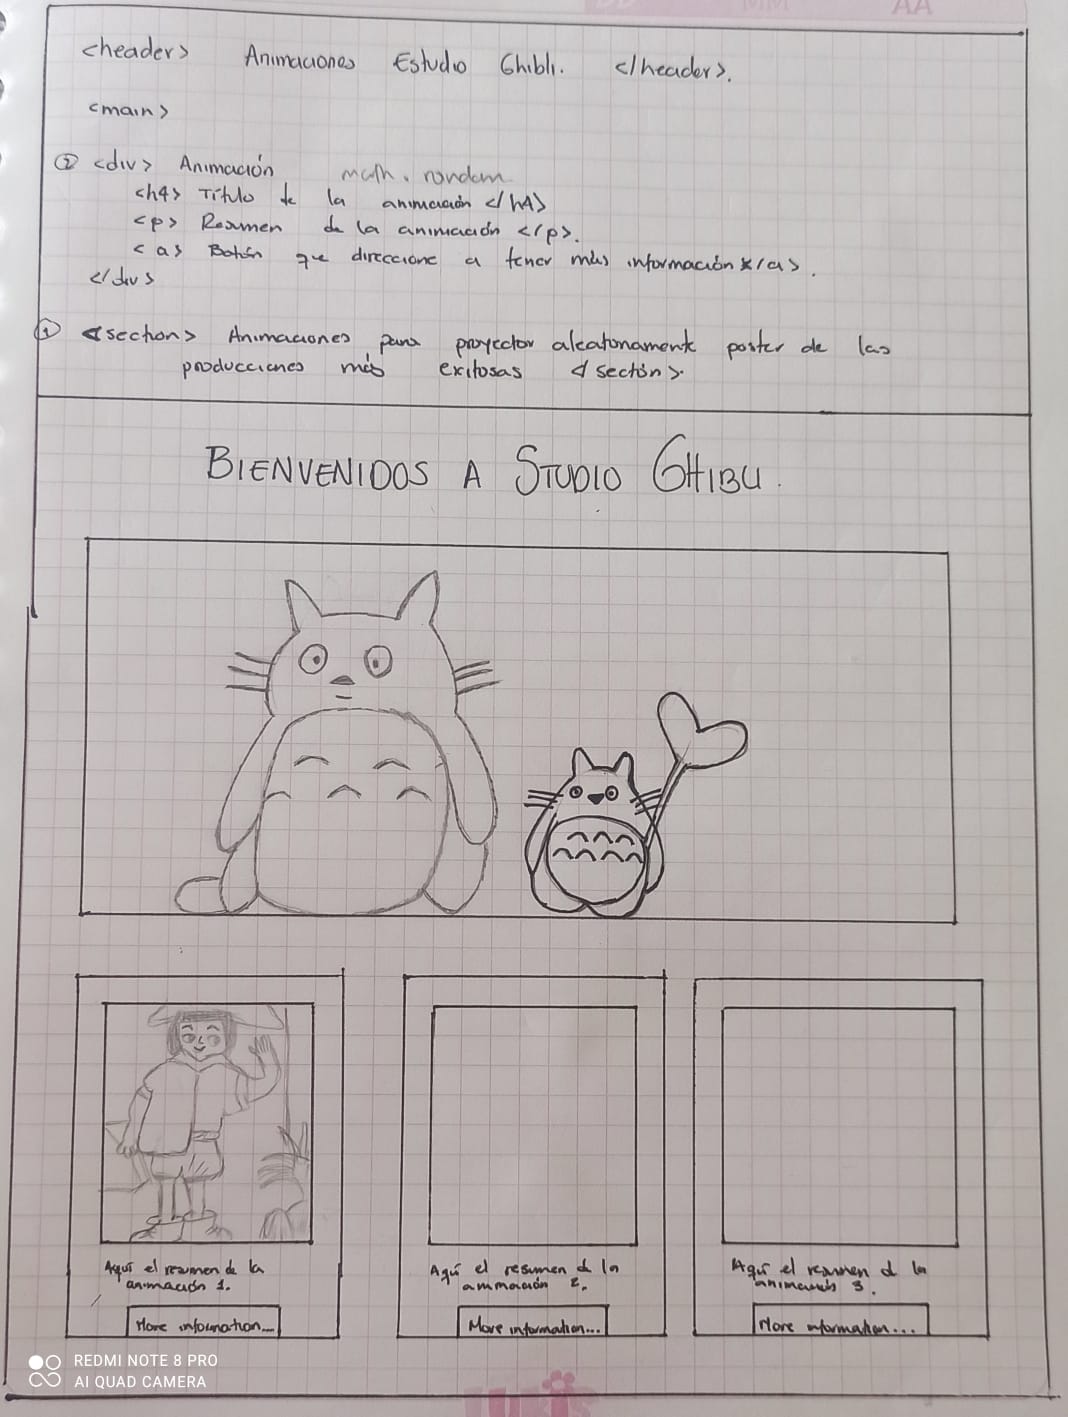 MM
AA
<header> Animaciones Estudio Ghibli. </header>.
<main>
② <div> Animación math. random
<h4> Título de la animación </h4>
<p> Resumen de la animación </p>.
<a> Botón que direccione a tener más información </a>.
</div>
① <section> Animaciones para proyectar aleatoriamente poster de las
producciones más exitosas </section>.
BIENVENIDOS A STUDIO GHIBLI.
Aquí el resumen de la
animación 1.
More information...
Aquí el resumen d la
animación 2.
More information...
Aquí el resumen d la
animación 3.
More information...
REDMI NOTE 8 PRO
AI QUAD CAMERA